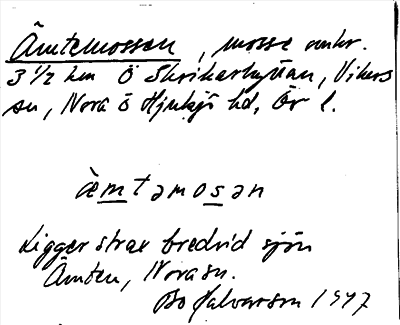 Ämtemossen, mosse omkr.
3 1/2 km Ö Skrikarhyttan, Vikers
sn, Nora o Hjulsjö hd, Ör l.
æmtəmosən
Ligger strax bredvid sjön
Ämten, Nora sn.
Bo Halvarson 1947